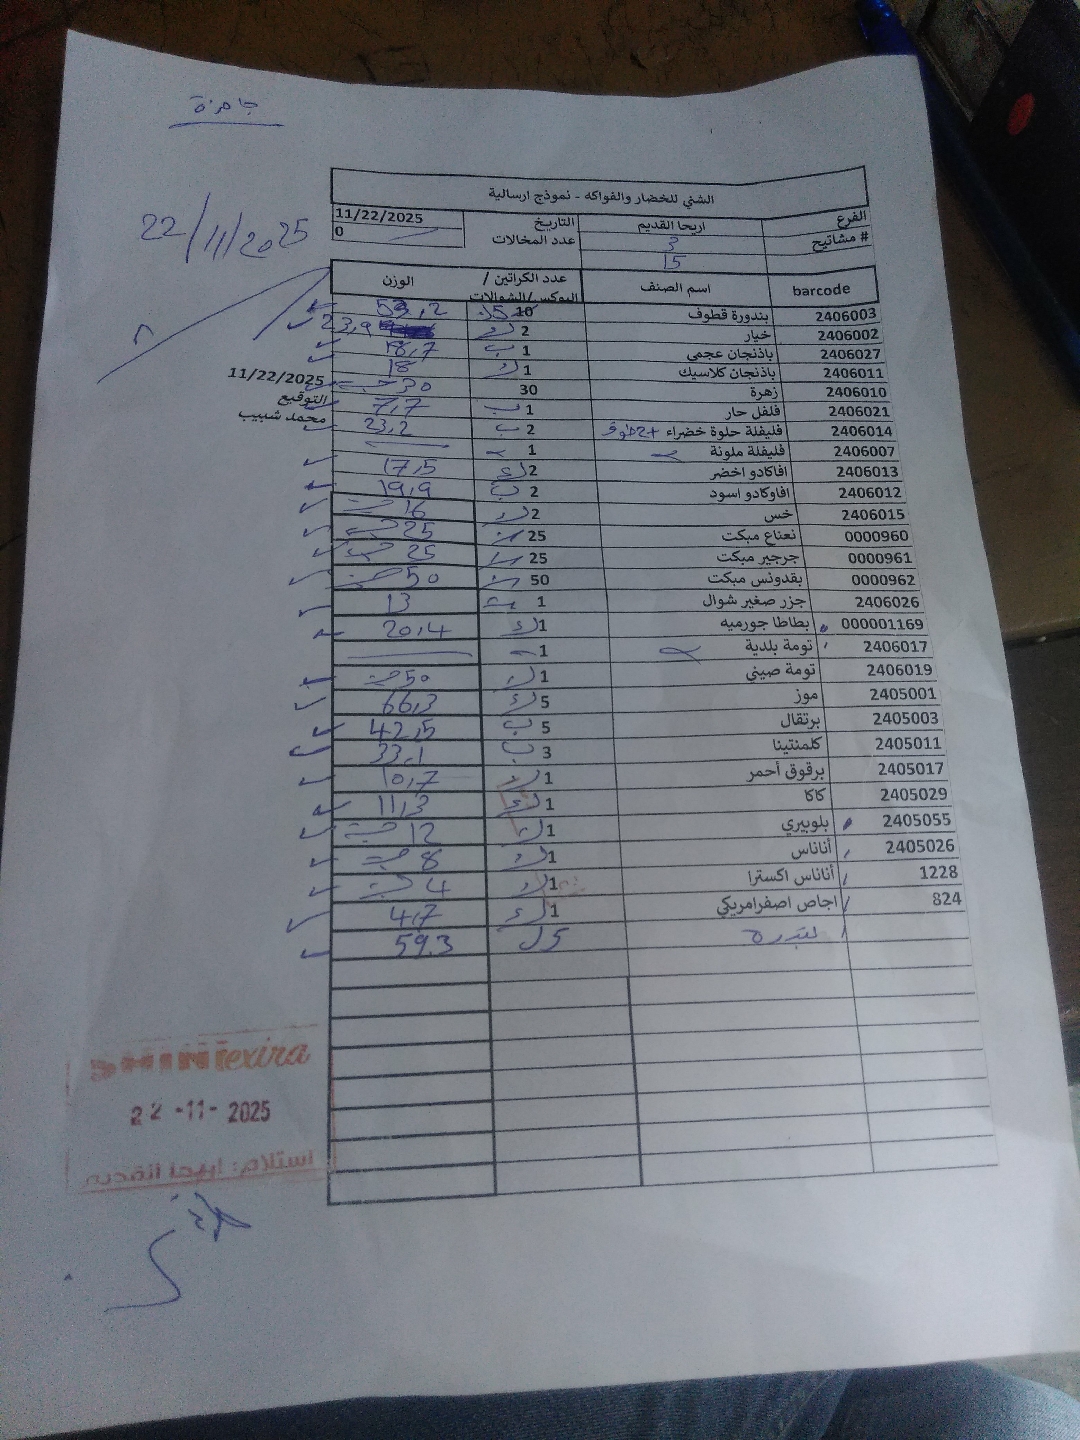 جاهزة
22/11/2025
الشني للخضار والفواكه - نموذج ارسالية
الفرع اريحا القديم التاريخ 11/22/2025
# مشاتيح 3 عدد المخالات 0
15
barcode اسم الصنف عدد الكراتين / البوكس/الشوالات الوزن
2406003 بندورة قطوف 10 5 53,2
2406002 خيار 2 23,9
2406027 باذنجان عجمي 1 ب 18,7
2406011 باذنجان كلاسيك 1 18
2406010 زهرة 30 30 حبة
2406021 فلفل حار 1 ب 7,7
2406014 فليفلة حلوة خضراء 2 ب 23,2
2406007 فليفلة ملونة 1
2406013 افاكادو اخضر 2 17,5
2406012 افاوكادو اسود 2 ب 19,9
2406015 خس 2 16 حبة
0000960 نعناع مبكت 25 25 حبة
0000961 جرجير مبكت 25 25 حبة
0000962 بقدونس مبكت 50 50 حبة
2406026 جزر صغير شوال 1 13
000001169 بطاطا جورميه 1 20,4
2406017 تومة بلدية 1
2406019 تومة صيني 1 50 حبة
2405001 موز 5 66,3
2405003 برتقال 5 ب 42,5
2405011 كلمنتينا 3 ب 33,1
2405017 برقوق أحمر 1 10,7
2405029 كاكا 1 11,3
2405055 بلوبيري 1 12 حبة
2405026 أناناس 1 8 حبة
1228 أناناس اكسترا 1 4 حبة
824 اجاص اصفرامريكي 1 4,7
5 59.3
11/22/2025
التوقيع
محمد شبيب
22 -11- 2025
استلام: اريحا القديم